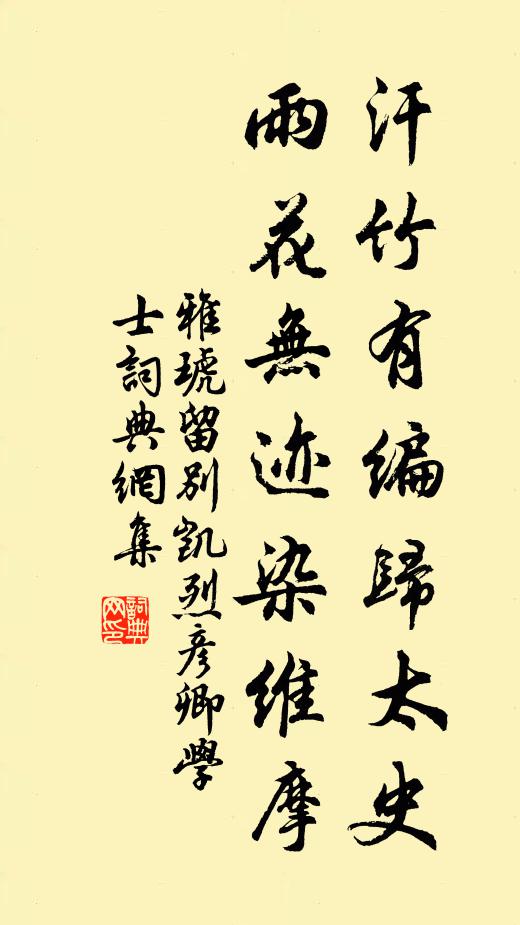 汗竹有編歸太史
雨花無迹染維摩
雅琥留別凱烈彥卿學
士詞典網集
詞典
网印